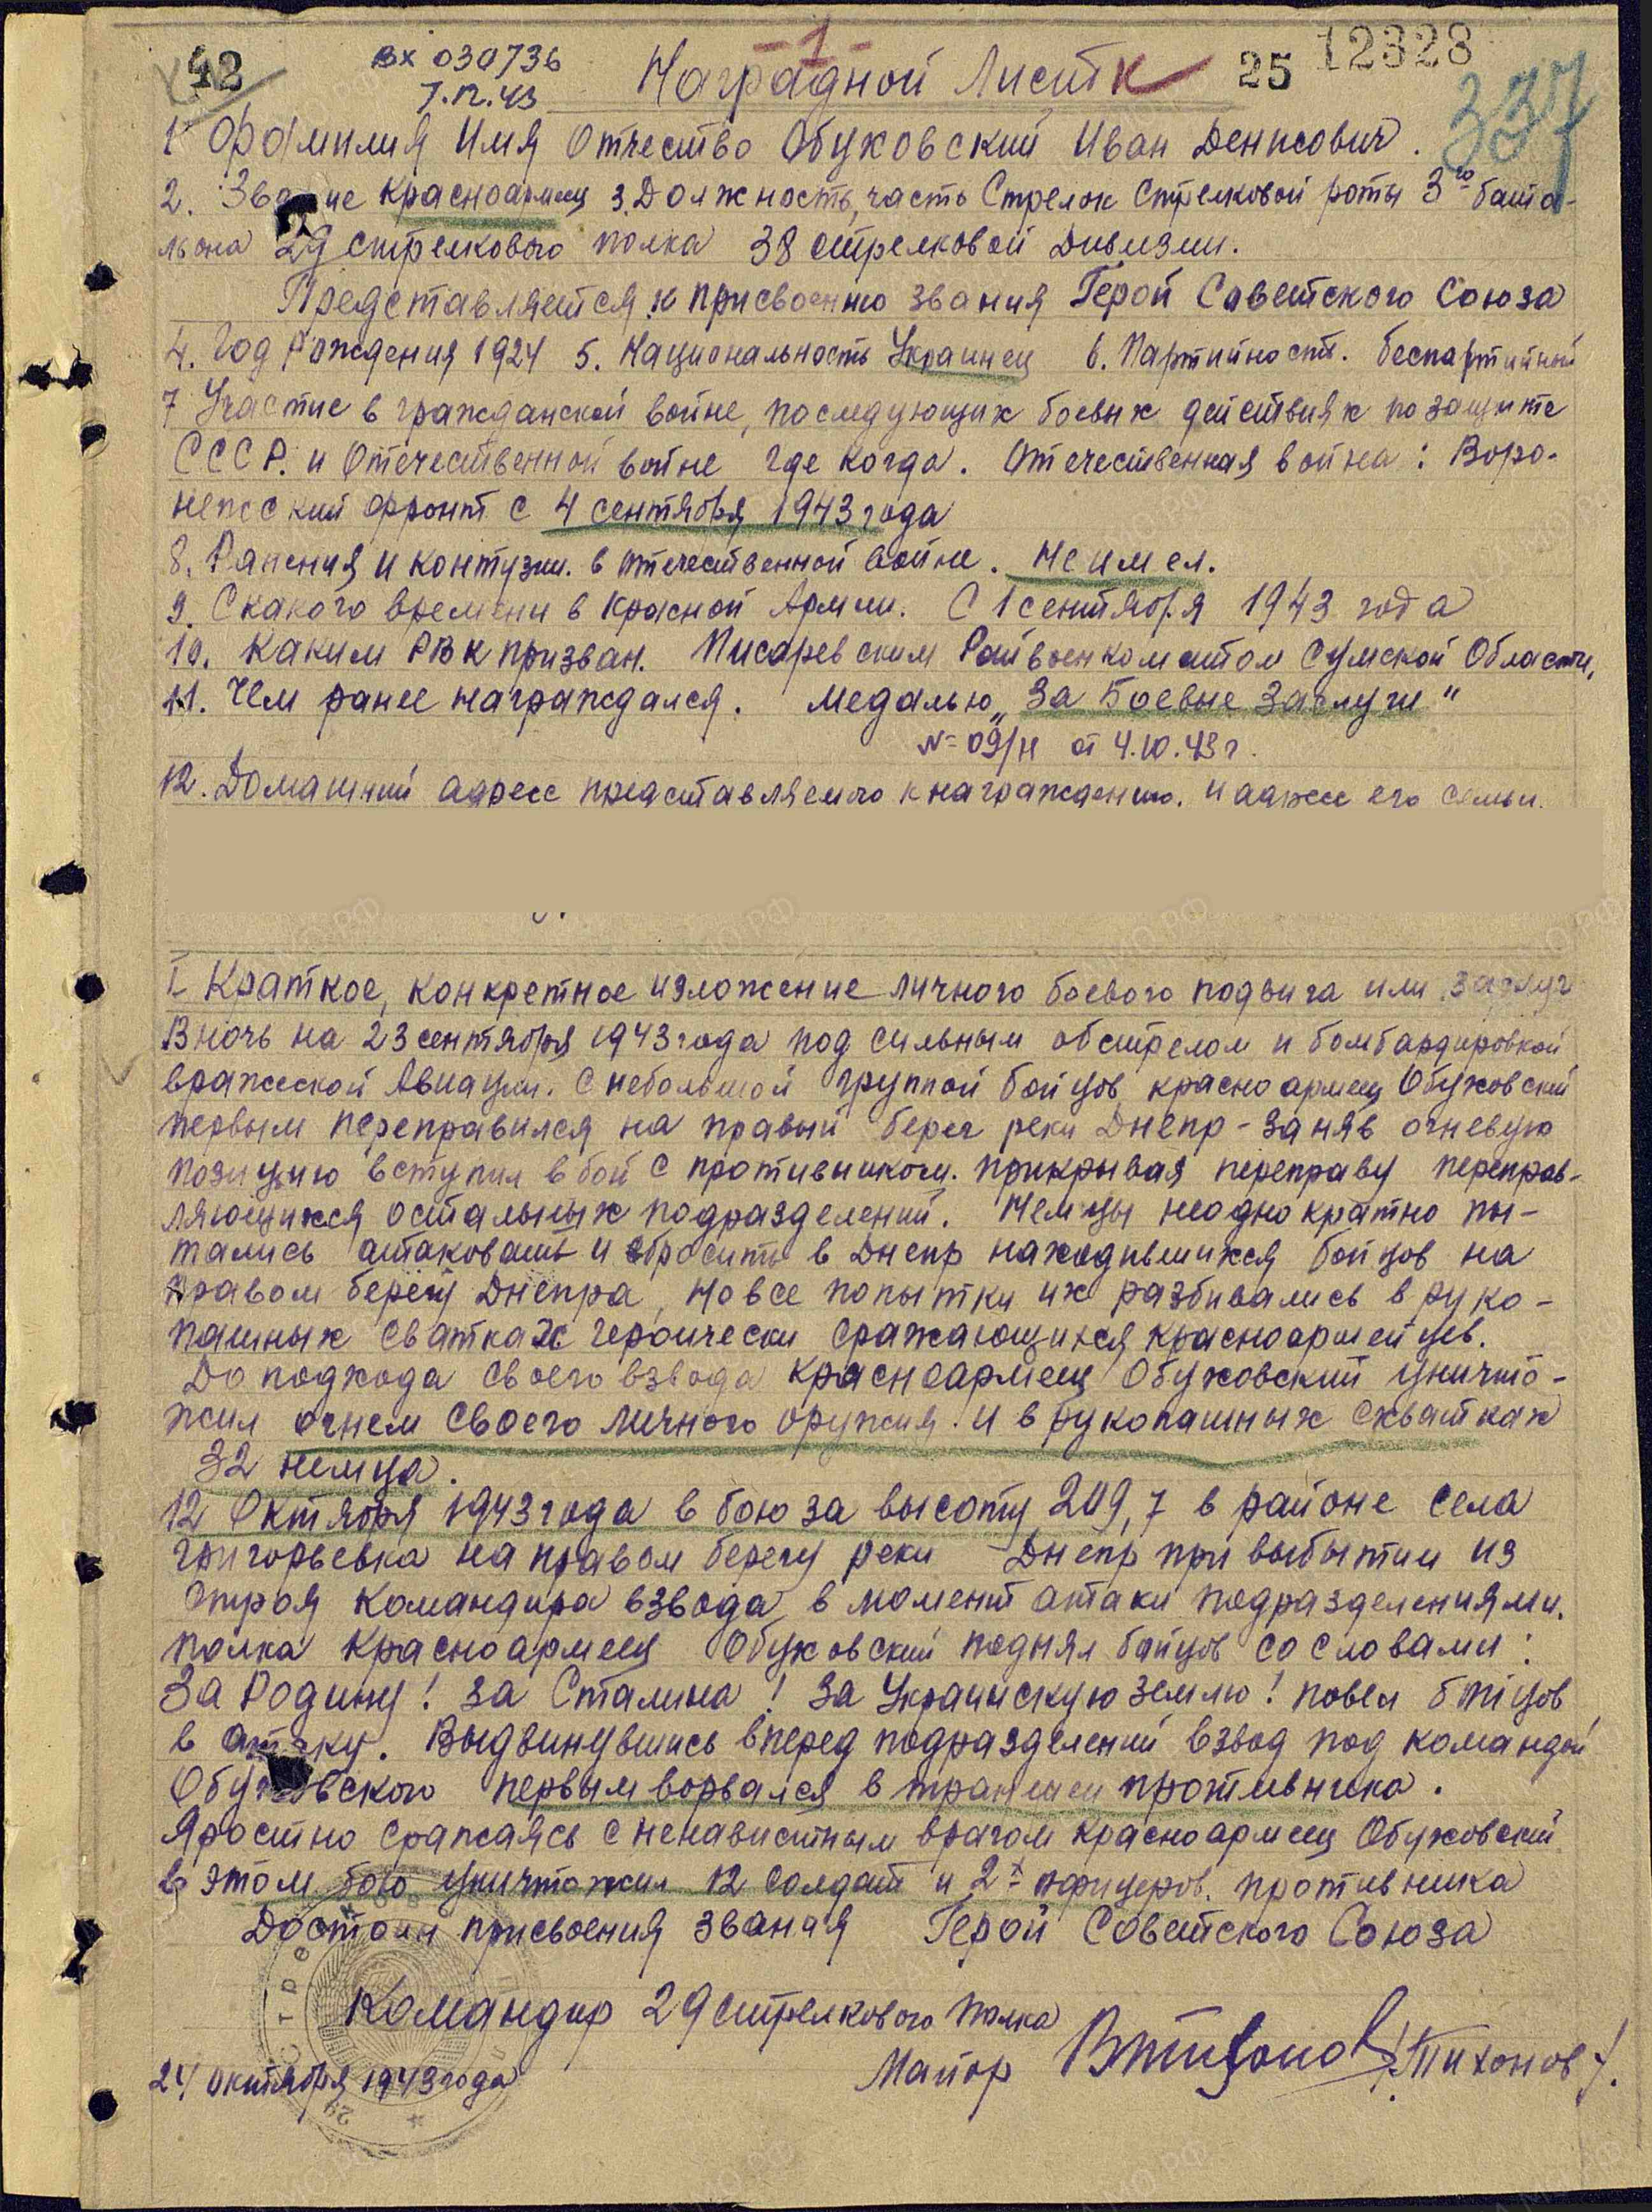 42
вх 030736
7.12.43
-1-
Наградной Листок
25 12328
337
1 Фамилия Имя Отчество Обуховский Иван Денисович.
2. Звание Красноармеец 3. Должность, часть Стрелок Стрелковой роты 3го бата-
льона 29 стрелкового полка 38 стрелковой Дивизии.
Представляется к присвоению звания Герой Советского Союза
4. Год Рождения 1924 5. Национальность Украинец 6. Партийность. беспартийный
7 Участие в гражданской войне, последующих боевых действиях по защите
СССР. и Отечественной войне где когда. Отечественная война: Воро-
нежский фронт с 4 сентября 1943 года
8. Ранения и контузии. в отечественной войне. Не имел.
9. С какого времени в Красной Армии. С 1 сентября 1943 года
10. Каким РВК призван. Писаревским Райвоенкоматом Сумской Области,
11. Чем ранее награждался. Медалью „За Боевые Заслуги"
№ 09/н от 4.10.43 г.
12. Домашний адресс представляемого к награждению. и адресс его семьи.
I Краткое, конкретное изложение личного боевого подвига или заслуг
В ночь на 23 сентября 1943 года под сильным обстрелом и бомбардировкой
вражеской Авиации. С небольшой группой бойцов, красноармеец Обуховский
первым переправился на правый берег реки Днепр - заняв огневую
позицию вступил в бой с противником. прикрывая переправу переправ-
ляющихся остальных подразделений. Немцы неоднократно пы-
тались атаковать и сбросить в Днепр находившихся бойцов на
правом берегу Днепра, но все попытки их разбивались в руко-
пашных схватках героически сражающихся красноармейцев.
До подхода своего взвода красноармеец Обуховский уничто-
жил огнем своего личного оружия и в рукопашных схватках
32 немца.
12 Октября 1943 года в бою за высоту 209,7 в районе села
Григорьевка на правом берегу реки Днепр при выбытии из
строя командира взвода, в момент атаки подразделениями.
полка Красноармеец Обуховский поднял бойцов со словами:
За Родину! За Сталина! За Украинскую землю! повел бойцов
в атаку. Выдвинувшись вперед подразделений взвод под командой
Обуховского первым ворвался в траншеи противника.
Яростно сражаясь с ненавистным врагом красноармеец Обуховский
в этом бою уничтожил 12 солдат и 2х офицеров. противника
Достоин присвоения звания Герой Советского Союза
Командир 29 стрелкового полка
Майор /Тихонов/.
24 октября 1943 года